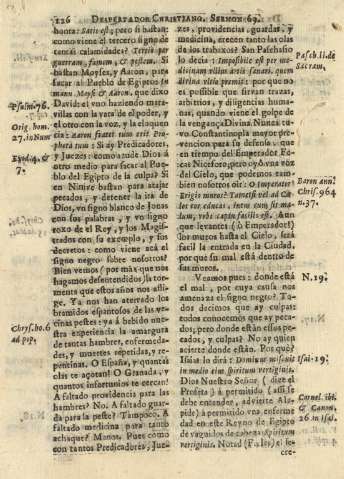 126 DESPERTADOR CHRISTIANO. SERMON 69.
honra: Satis est; pero si bastan:
como viene el tercero signo de
tantas calamidades? Tertio per
guerram, famem, & pestem. Si
bastan Moyses, Aaron, para
sacar al Pueblo de Egipto
que dixo
David: el vno haziendo maravillas
con la vara de el poder, y
el otro con la voz, y la eloquencia:
Aaron fuerat tum erit Propheta
tuus: Si ay Predicadores,
y Juezes: como añade Dios à
otro medio para sacar al Pueblo
del Egipto de la culpa? Si
en Ninive bastan para atajar
pecados, y detener la ira de
Dios, vn signo blanco de Jonas
con sus palabras, y vo signo
roxo de el Rey, y los Magistrados
con su exemplo, y sus
decretos: como viene acà el
signo negro sobre nosotros?
Bien vemos (por màs que nos
hagamos desentendidos) la tormenta
que estos años nos aflige.
Ya nos han aterrado los
bramidos espantosos de las vecinas
pestes: ya à bebido nuestra
experiencia la amargura
de tantas hambres, enfermedades,
y muertes repetidas, repentinas.
O España, y quantas
quantos infortunios te cercan!
A faltado providencia para las
hambres? No. A faltado guarda
para la peste? Tampoco. A
faltado medicina para tanto
achaque? Menos. Pues como
con tantos Predicadores, Juezes,
providencias, guardas, y
medicina, crecen tanto las olas
de los trabaxos? San Paschasio
lo decia: Impossibile est per medicinam
illum artis sanari, quem
divina vltio premit: por que no
es possible que sirvan trazas,
arbitrios, y diligencias humanas,
quando viene el golpe de
la vengança Divina. Nunca tuvo
Constantinopla mayor prevencion
para su defensa que
en tiempo del Emperador Focas
Niceforo, pero oyò vna voz
del Cielo, que podemos tambien
nosotros oìr: O Imperator
Erigis muros? Tametsi vel ad Cælum
malum,
que levantes (ò Emperador!)
los muros hasta el Cielo, serà
facil la entrada en la Ciudad,
por què su mal està dentro de
sus muros.
Veamos pues: donde està
el mal, por cuya causa nos
amenaza el signo negro? Todos
decimos que ay culpas:
todos conocemos que ay pecados;
pero donde estàn essos pecados,
y culpas? No ay quien
acierte donde estàn. Por què?
Isaias lo dirà: Dominus miscuit
in medio eius spiritum vertiginis.
Dios Nuestro Señor (dize el
Profeta) à permitido (assi se
debe entender, advierte Alapide)
à permitido vna enfermedad
en este Reyno de Egipto
de vaguidos de cabeza: Spiritum
vertiginis. Notad (Fieles) el secre-
Psalm. 76.
Orig. hom.
27. in Num
Exod. 4. &
7.
Chrys. ho. 6
ad pop.
Pasch. li. de
Sacram.
Baron ann.
Chri. 964
n. 37.
N. 19.
Isai. 19.
Cornel. ibi.
& Comm.
26 in Isai.